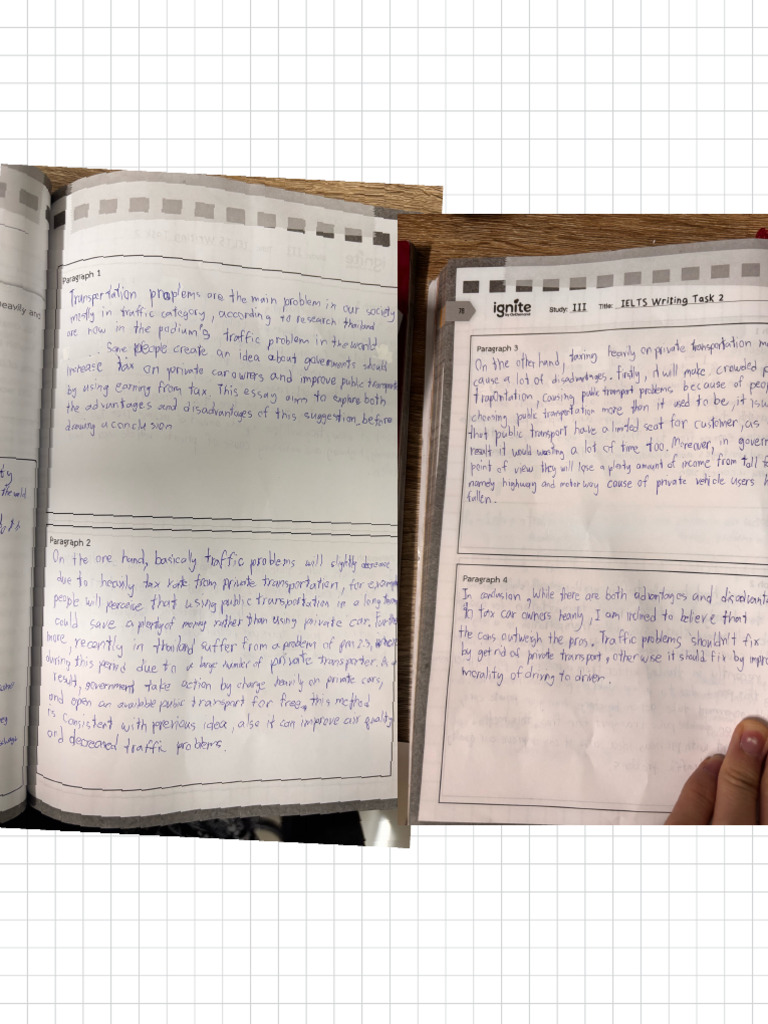 Paragraph 1
Transpertation problems are the main problem in our society
mostly in traffic category, according to research thailand
are now in the podium's traffic problem in the world
... Some people create an idea about governments should
increase tax on private car owners and improve public transport
by using earning from tax. This essay aim to explore both
the advantages and disadvantages of this suggestion before
drawing a conclusion
Paragraph 2
On the one hand, basically traffic problems will slightly decrease
due to heavily tax rate from private transportation, for example
people will perceive that using public transportation in a long
could save a plenty of money rather than using private car.
more, recently in thailand suffer from a problem of pm 2.5,
during this period due to a large number of private transporter.
result, government take action by charge heavily on private cars,
and open an available public transport for free, this method
is consistent with previous idea, also it can improve air quality
and decreased traffic problems.
heavily and
the world
ignite
78
Study: III Title: IELTS Writing Task 2
Paragraph 3
On the other hand, taxing heavily on private transportation
cause a lot of disadvantages. firstly, it will make crowded
tranportation, causing public transport problems because of
choosing public tranportation more than it used to be, it
that public transport have a limited seat for customer, as
result it would wasting a lot of time too. Moreover, in
point of view they will lose a plenty amount of income from toll
namely highway and motor way cause of private vehicle users
fallen.
Paragraph 4
In conclusion, While there are both advantages and
to tax car owners heavily, I am inclined to believe that
the cons outweigh the pros. Traffic problems shouldn't fix
by get rid of private transport, otherwise it should fix by
morality of driving to driver.